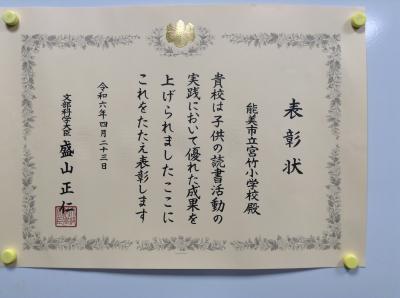 表彰状
能美市立宮竹小学校殿
貴校は子供の読書活動の
実践において優れた成果を
上げられましたここに
これをたたえ表彰します
令和六年四月二十三日
文部科学大臣 盛山正仁